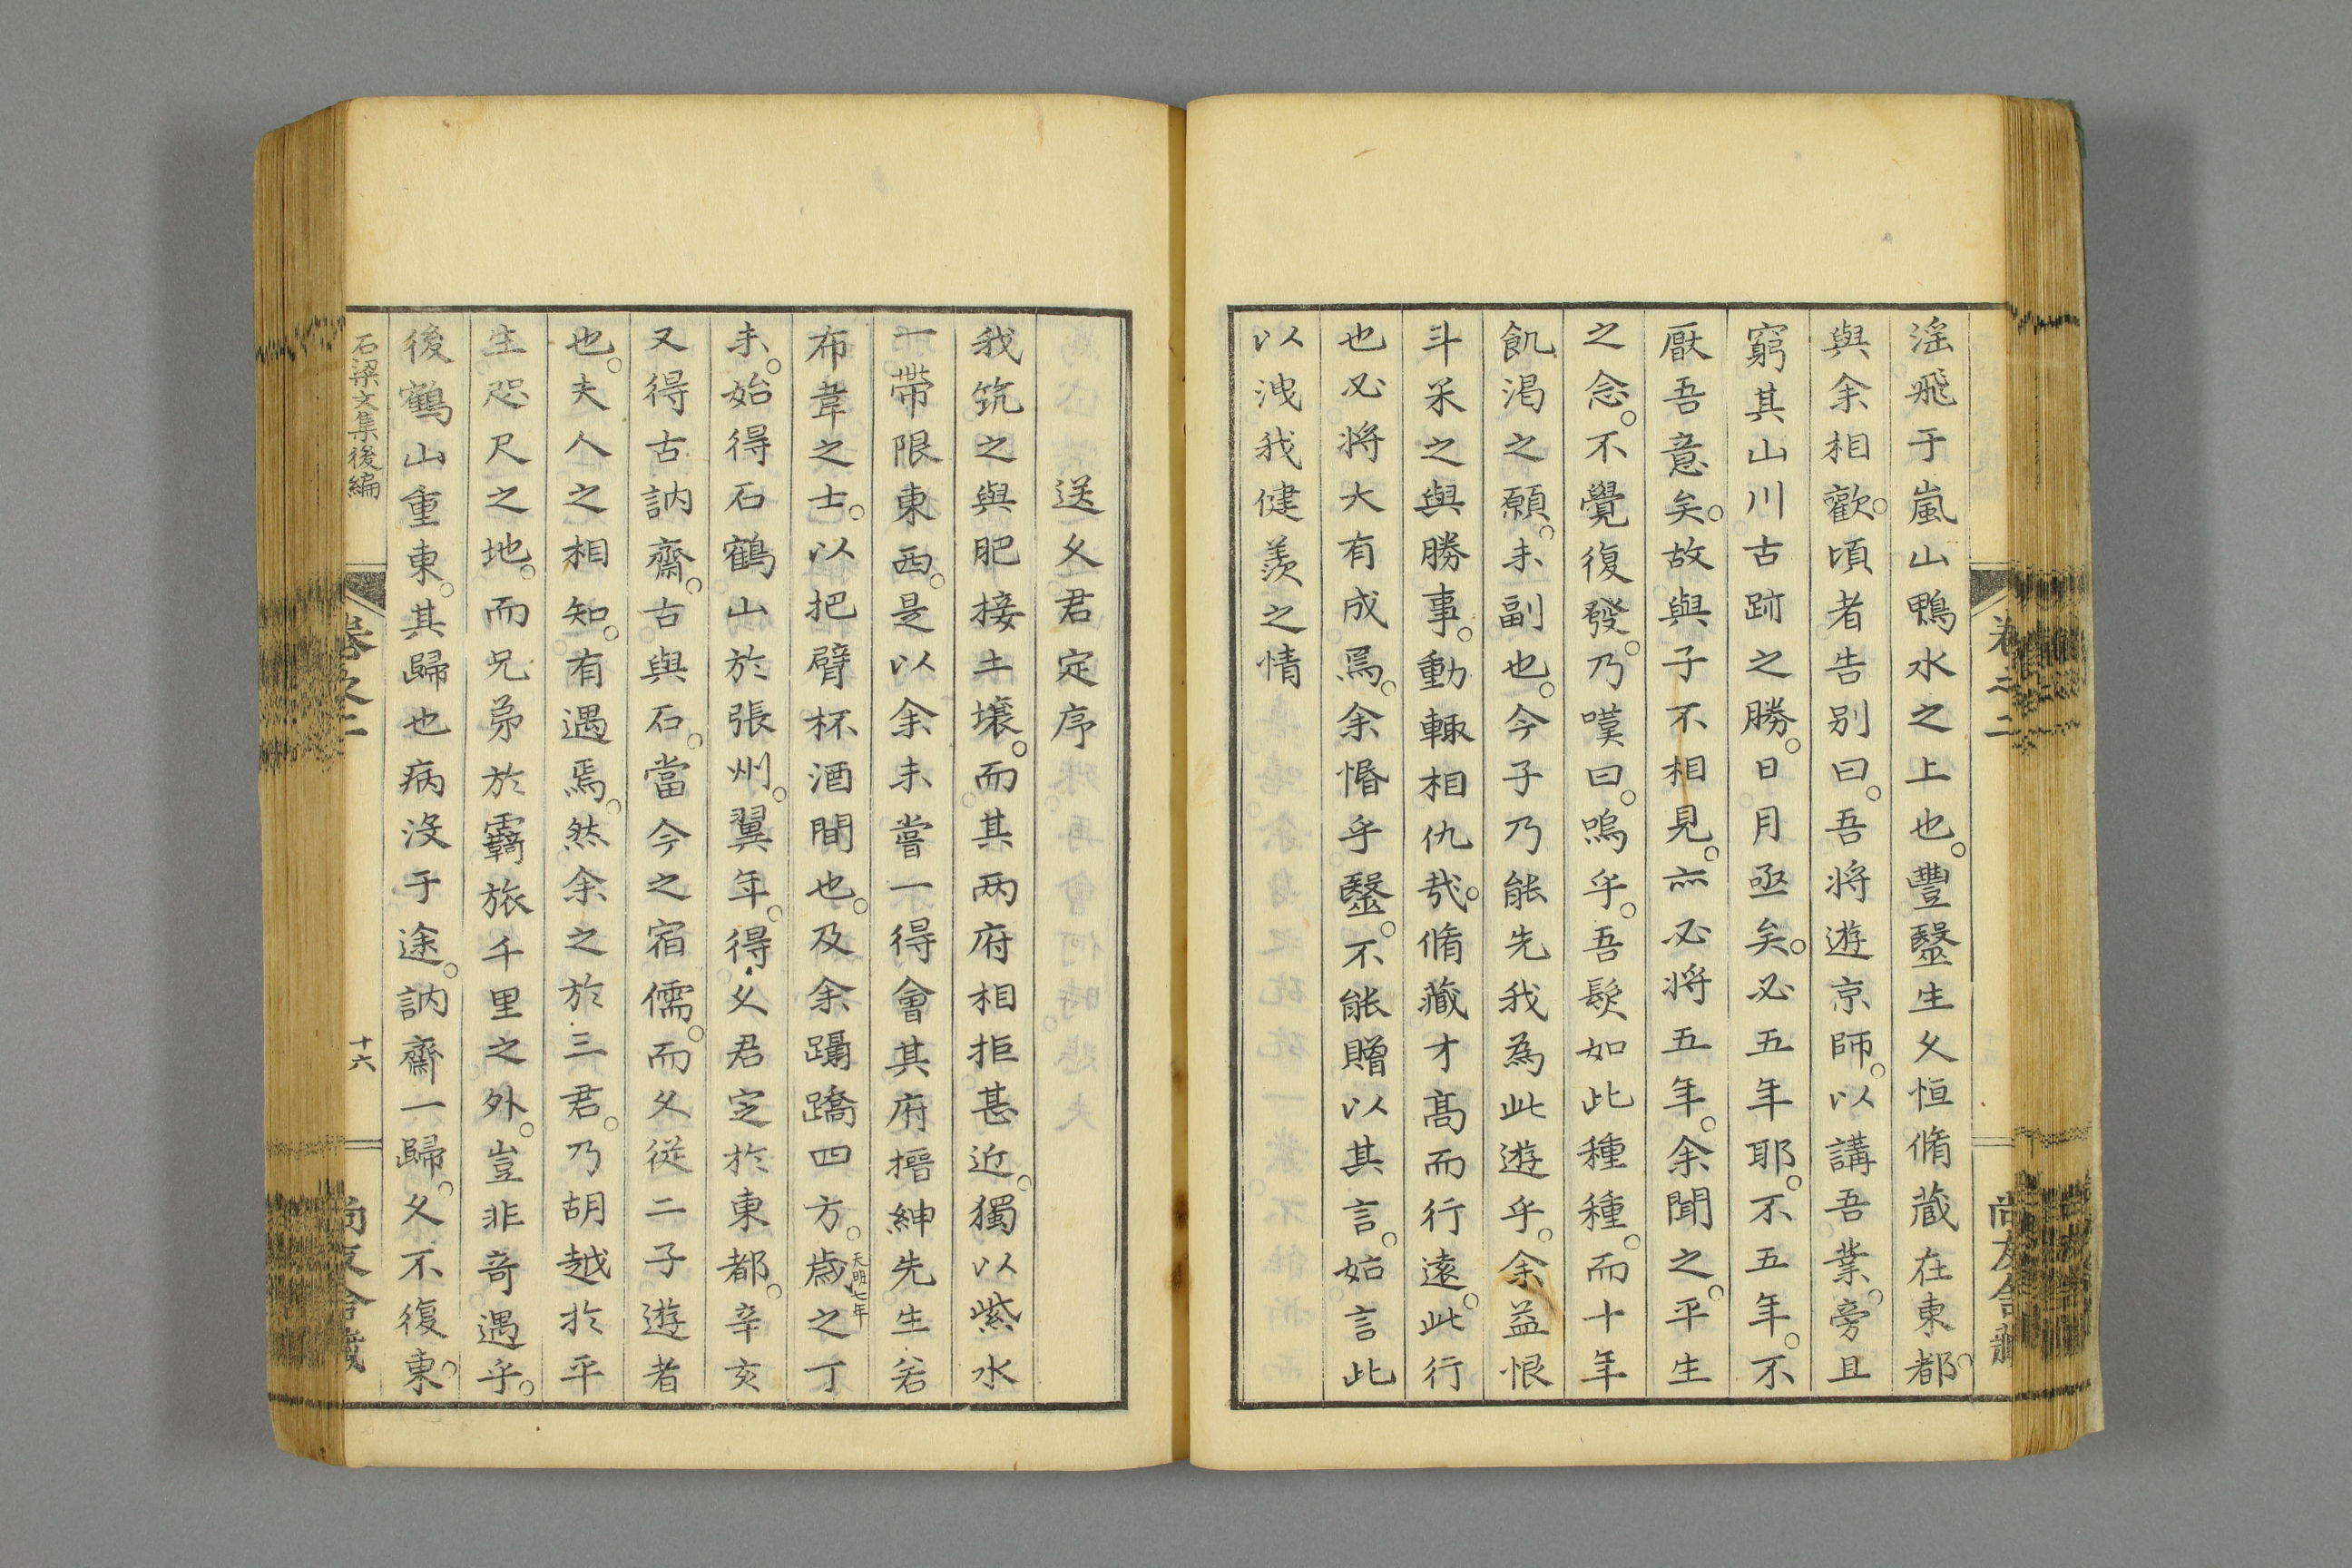 滛飛于嵐山鴨水之上也。豐毉生攵恒脩蔵在東都。
與余相歡。頃者告别曰。吾将遊京師。以講吾業。旁且
窮其山川古跡之勝。日月亟矣。必五年耶。不五年。不
厭吾意矣。故與子不相見。亦必将五年。余聞之。平生
之念。不覺復發。乃嘆曰。嗚乎。吾髮如此種種。而十年
飢渇之願。未副也。今子乃能先我為此遊乎。余益恨
斗米之與勝事。動輙相仇㢤。脩蔵才髙而行遠。此行
也必将大有成焉。余惛乎毉。不能贈以其言。姑言此
以洩我健羨之情
送攵君定序
我筑之與肥接土壌。而其两府相拒甚近。獨以紫水
一帶限東西。是以余未嘗一得會其府搢紳先生若
布韋之士。以把臂杯酒間也。及余躡蹻四方。歳天明七年之丁
未。始得石鶴山於張州。翼年。得攵君定於東都。辛亥
又得古訥齋。古與石。當今之宿儒。而攵從二子遊者
也。夫人之相知。有遇焉。然余之於三君。乃胡越於平
生咫尺之地。而兄弟於覊旅千里之外。豈非竒遇乎。
後鶴山重東。其歸也病没于途。訥齋一歸。攵不復東。
石梁文集後編
卷之二
十六
尚友舎蔵